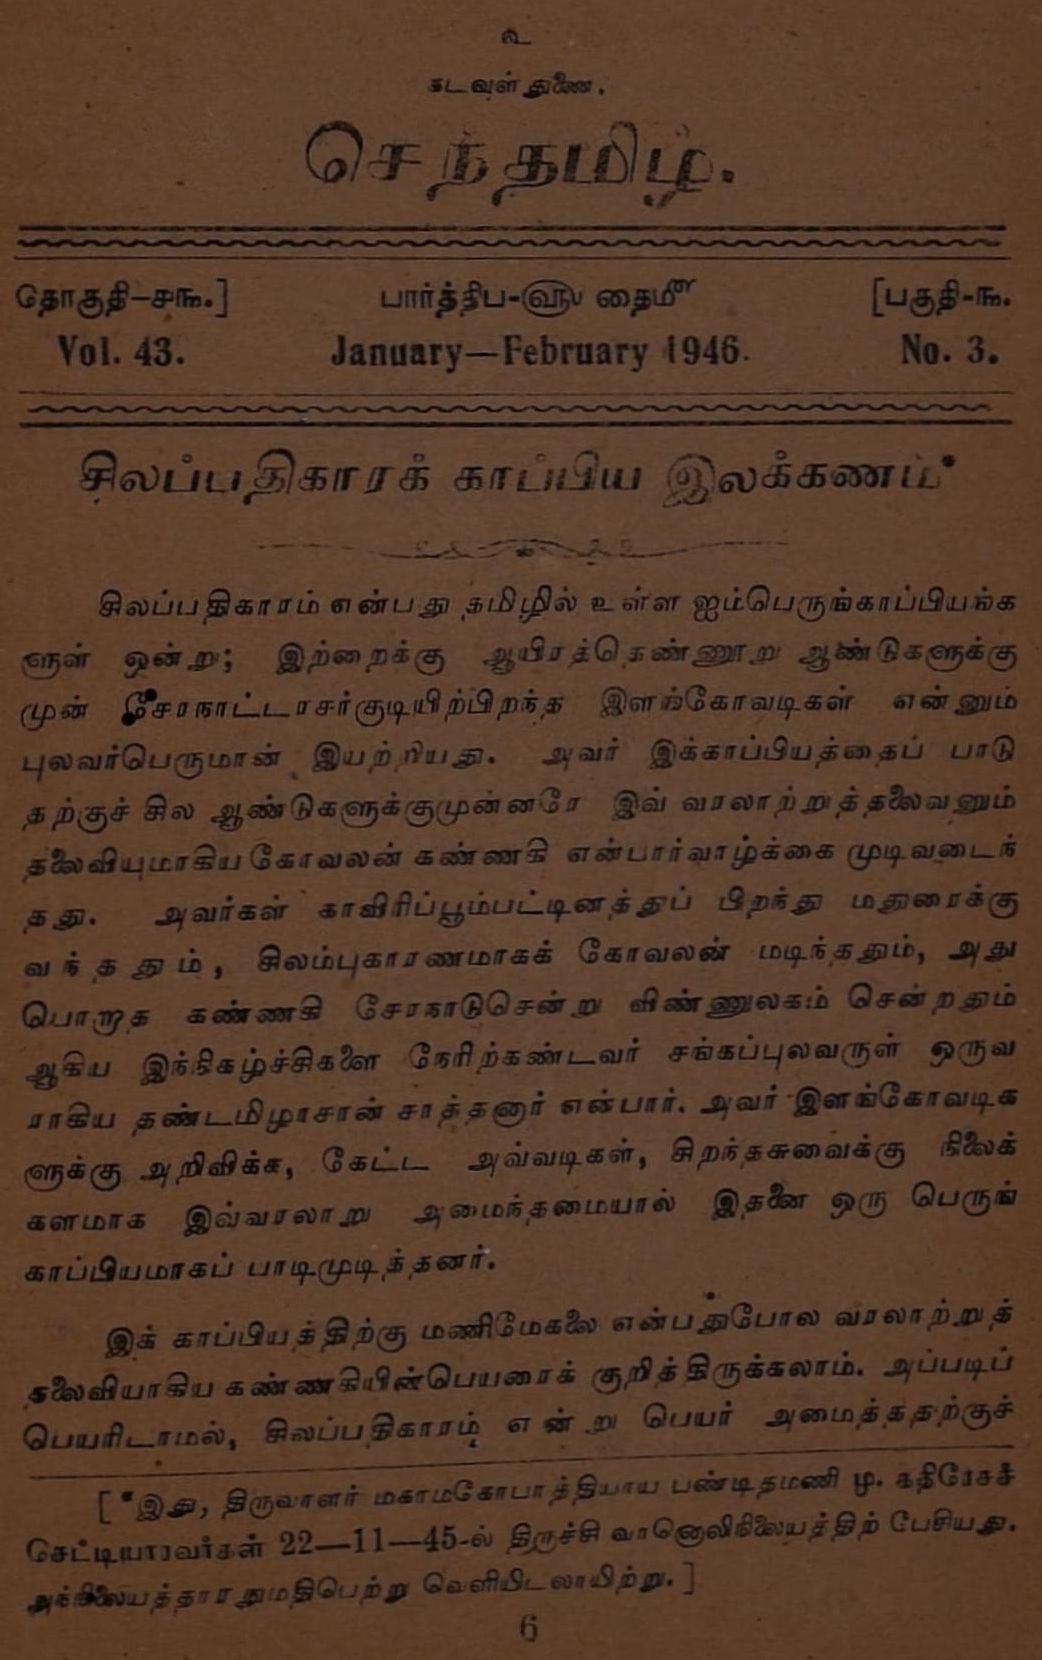 உ
கடவுள் துணை.
செந்தமிழ்.
தொகுதி-௪௩.] பார்த்திப-௵ தை௴ [பகுதி-௩.
Vol. 43. January—February 1946. No. 3.
சிலப்பதிகாரக் காப்பிய இலக்கணம்*
சிலப்பதிகாரம் என்பது தமிழில் உள்ள ஐம்பெருங்காப்பியங்க
ளுள் ஒன்று; இற்றைக்கு ஆயிரத்தெண்ணூறு ஆண்டுகளுக்கு
முன் சேரநாட்டரசர்குடியிற்பிறந்த இளங்கோவடிகள் என்னும்
புலவர்பெருமான் இயற்றியது. அவர் இக்காப்பியத்தைப் பாடு
தற்குச் சில ஆண்டுகளுக்குமுன்னரே இவ் வரலாற்றுத்தலைவனும்
தலைவியுமாகிய கோவலன் கண்ணகி என்பார்வாழ்க்கை முடிவடைந்
தது. அவர்கள் காவிரிப்பூம்பட்டினத்துப் பிறந்து மதுரைக்கு
வந்ததும், சிலம்புகாரணமாகக் கோவலன் மடிந்ததும், அது
பொறாத கண்ணகி சேரநாடுசென்று விண்ணுலகம் சென்றதும்
ஆகிய இந்நிகழ்ச்சிகளை நேரிற்கண்டவர் சங்கப்புலவருள் ஒருவ
ராகிய தண்டமிழாசான் சாத்தனார் என்பார். அவர் இளங்கோவடிக
ளுக்கு அறிவிக்க, கேட்ட அவ்வடிகள், சிறந்தசுவைக்கு நிலைக்
களமாக இவ்வரலாறு அமைந்தமையால் இதனை ஒரு பெருங்
காப்பியமாகப் பாடிமுடித்தனர்.
இக் காப்பியத்திற்கு மணிமேகலை என்பதுபோல வரலாற்றுத்
தலைவியாகிய கண்ணகியின்பெயரைக் குறித்திருக்கலாம். அப்படிப்
பெயரிடாமல், சிலப்பதிகாரம் என்று பெயர் அமைத்ததற்குச்
[*இது, திருவாளர் மகாமகோபாத்தியாய பண்டிதமணி மு. கதிரேசச்
செட்டியாரவர்கள் 22—11—45-ல் திருச்சி வானொலிநிலையத்திற் பேசியது.
அந்நிலையத்தாரநுமதிபெற்று வெளியிடலாயிற்று.]
6